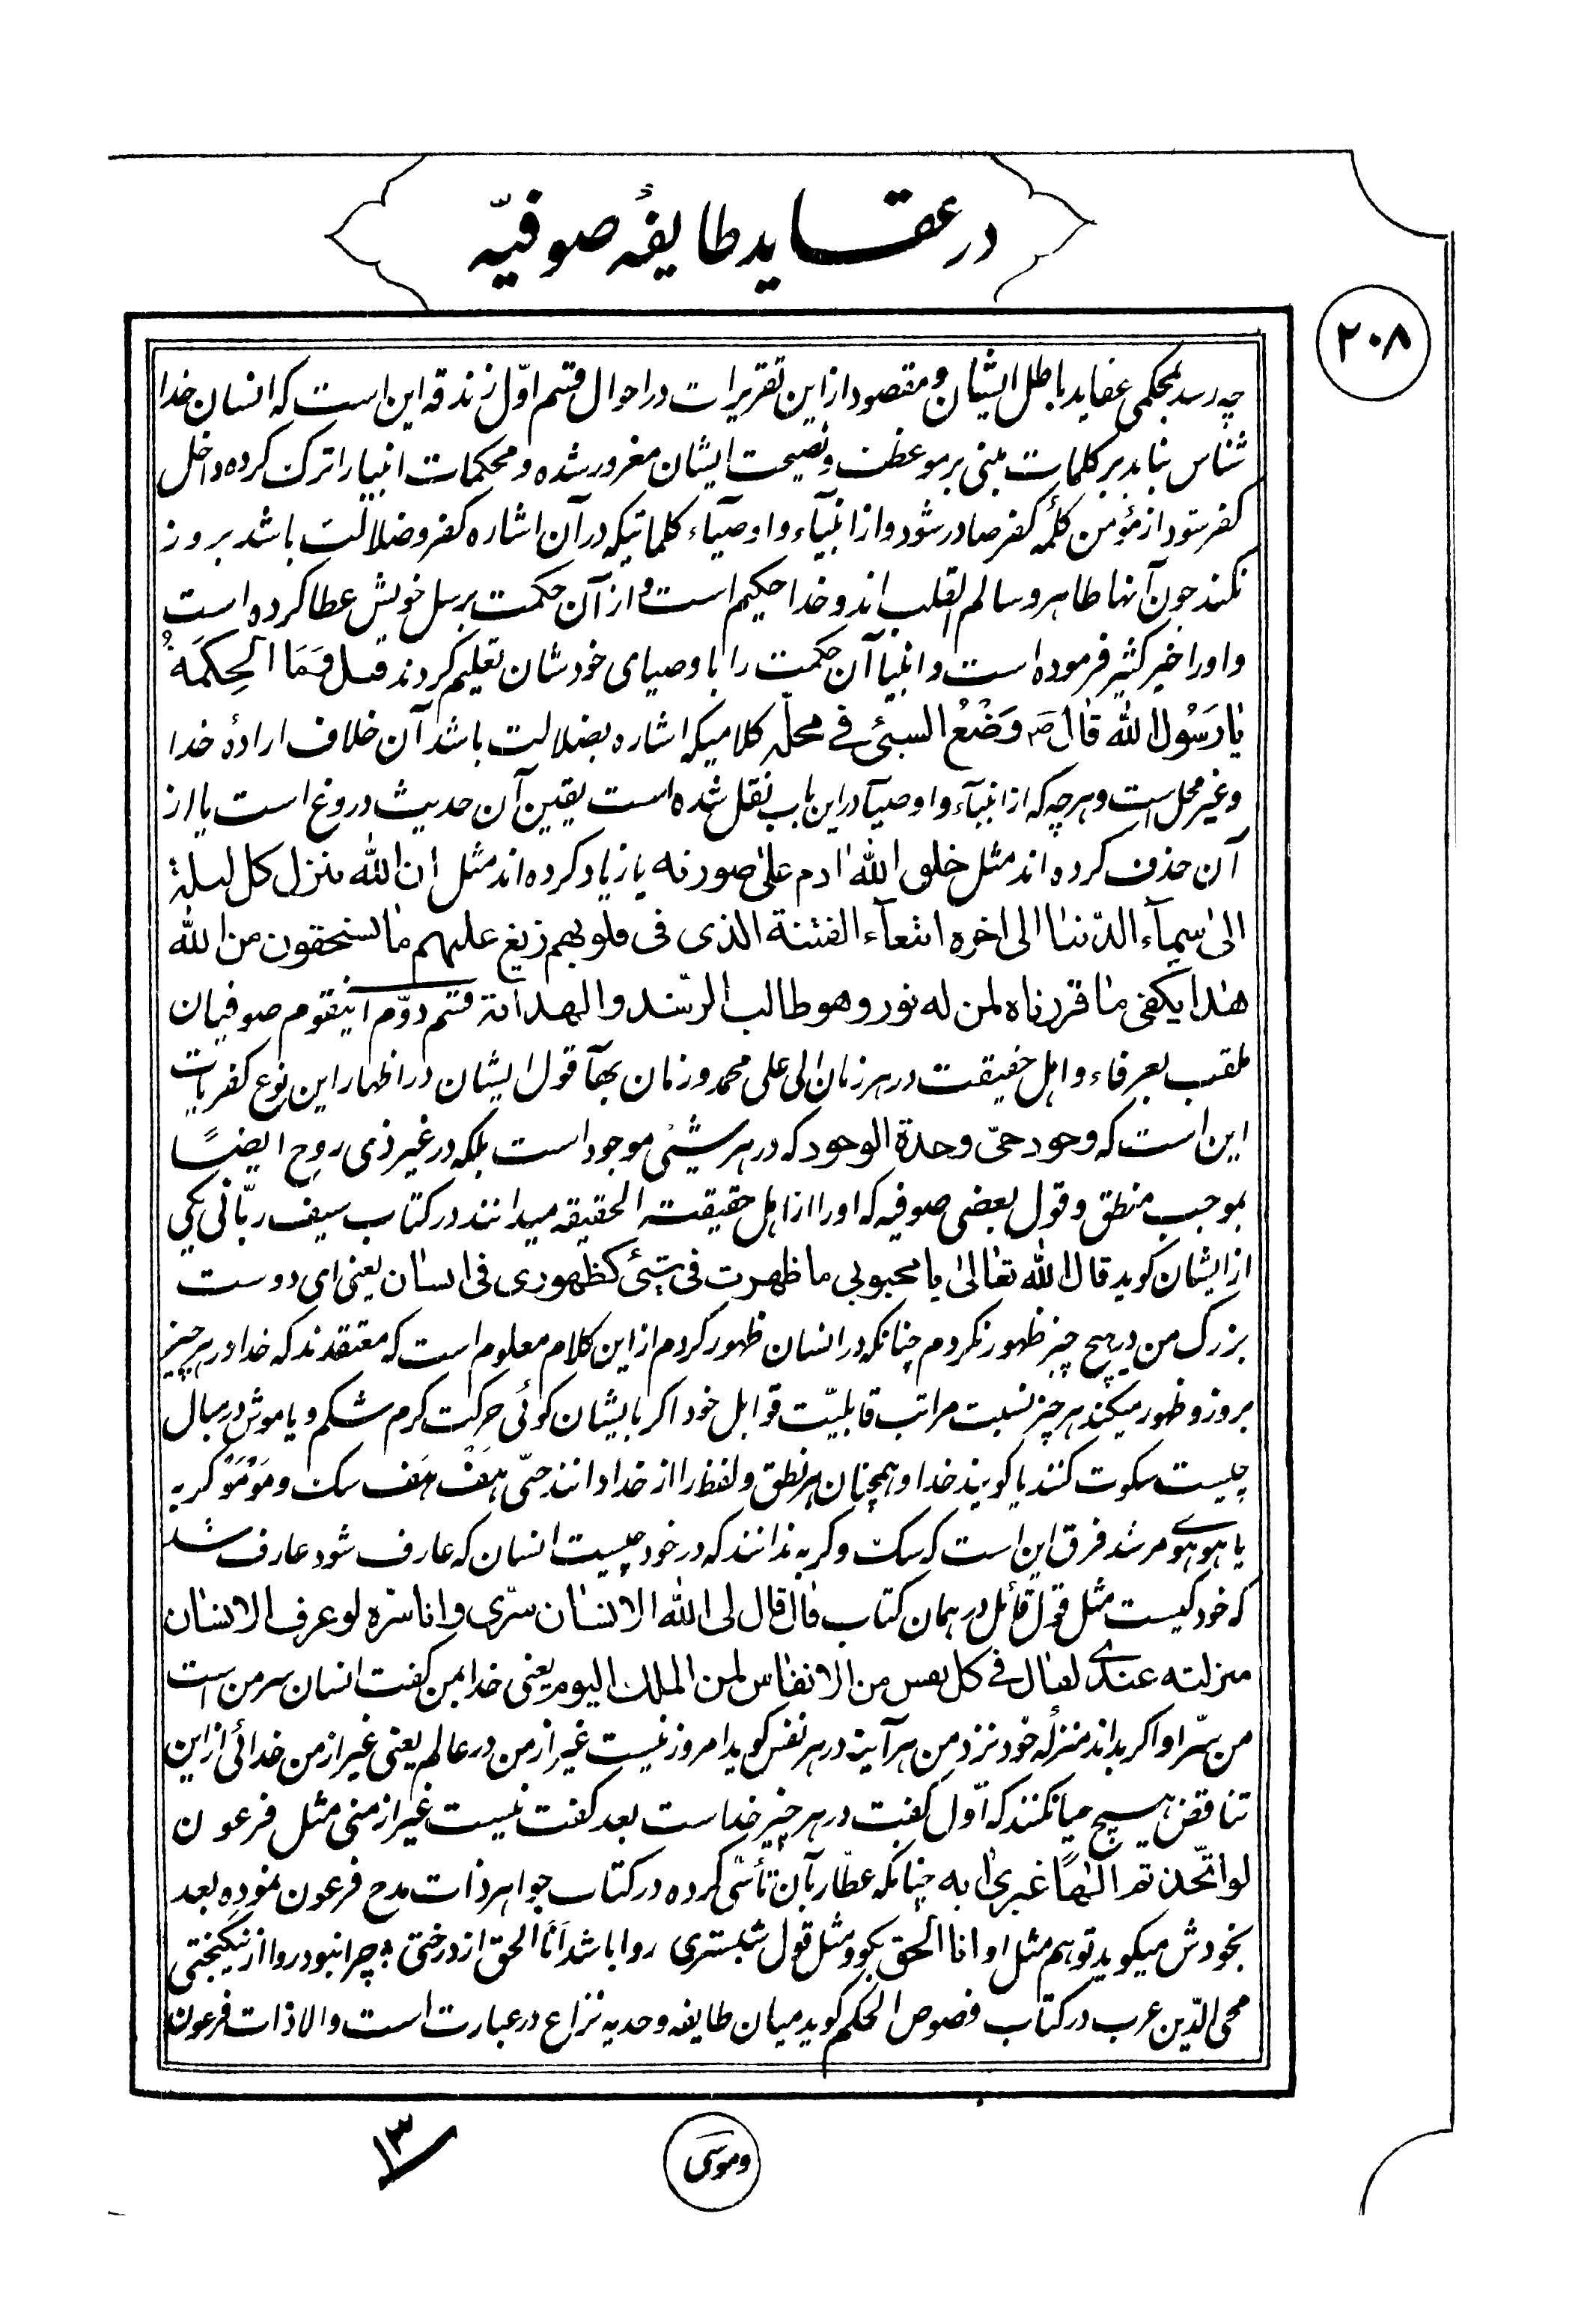 در عقاید طایفهٔ صوفیّه
۲۰۸
چه رسد بمحکمی عقاید باطل ایشان و مقصود از این تقریرات در احوال قسم اوّل زندقه این است که انسان خدا
شناس نباید بر کلمات مبنی بر موعظت و نصیحت ایشان مغرور شده و محکمات انبیا را ترک کرده داخل
کفر شود از مؤمن کلمهٔ کفر صادر شود و از انبیآء و اوصیآء کلماتیکه در آن اشاره کفر و ضلالت باشد بروز
نکند چون آنها طاهر و سالم القلب اند و خدا حکیم است و از آن حکمت برسل خویش عطا کرده است
و او را خیر کثیر فرموده است و انبیا آن حکمت را با وصیای خودشان تعلیم کردند قیل وَمَا الحِکمَةُ
یٰا رَسُول اللّٰه قٰالَ ص وَضْعُ الشیئ فی محلّه کلامیکه اشاره بضلالت باشد آن خلاف ارادهٔ خدا
و غیر محل است و هر چه که از انبیآء و اوصیآ در این باب نقل شده است یقین آن حدیث دروغ است یا از
آن حذف کرده اند مثل خلق اللّٰه اٰدم علیٰ صورته یا زیاد کرده اند مثل ان اللّٰه ینزل کل لیلة
الیٰ سمآء الدّنیٰا الی اخره ابتغآء الفتنة الذی فی قلوبهم زیغ علیهم مٰا یستحقون من اللّٰه
هٰذا یکفی مٰا قررناه لمن له نور و هو طالب الرّشد و الهدایة قسم دوّم اینقوم صوفیان
ملقب بعرفاء و اهل حقیقت در هر زمان الی علی محمد و زمان بهآ قول ایشان در اظهار این نوع کفریات
این است که وجود حیّ وحدة الوجود که در هر شیئی موجود است بلکه در غیر ذی روح ایضاً
بموجب منطق و قول بعضی صوفیه که او را از اهل حقیقت الحقیقه میدانند در کتاب سیف ربّانی یکی
از ایشان کوید قال اللّٰه تعٰالیٰ یا محبوبی ما ظهرت فی شیئ کظهوری فی انسٰان یعنی ای دوست
بزرک من در هیچ چیز ظهور نکردم چنانکه در انسان ظهور کردم از این کلام معلوم است که معتقدند که خدا در هر چیز
بروز و ظهور میکند هر چیز نسبت مراتب قابلیّت قوابل خود اکر بایشان کوئی حرکت کرم شکم و یا موش در مبال
چیست سکوت کنند یا کویند خدا و همچنان هر نطق و لفظ را از خدا دانند حتّی هَفْ هَف سک و مَوْمَوْ کربه
یا هو هوی مرشد فرق این است که سک و کربه ندانند که در خود چیست انسان که عارف شود عارف شد
که خود کیست مثل قول قائل در همان کتاب قال قال لی اللّٰه الانسٰان سرّی و انا سرّه لو عرف الانسٰان
منزلته عندی لقال فی کل نفس من الانفاس لمن الملک الیوم یعنی خدا بمن کفت انسان سر من است
من سرّ او اکر بداند منزلهٔ خود نزد من هر آینه در هر نفس کوید امروز نیست غیر از من در عالم یعنی غیر از من خدائی از این
تناقض هیچ حیا نکنند که اوّل کفت در هر چیز خداست بعد کفت نیست غیر از منی مثل فرعون
لو اتّخذتم الٰهاً غیری به چنانکه عطّار بآن تأسّی کرده در کتاب جواهر ذات مدح فرعون نموده بعد
بخودش میکوید تو هم مثل او انا الحق بکو و مثل قول شبستری روا باشد اَنَا الحق از درختی * چرا نبود روا از نیکبختی
محی الدّین عرب در کتاب فصوص الحکم کوید میان طایفه وحدیه نزاع در عبارت است و الا ذات فرعون
و موسی
۱۳